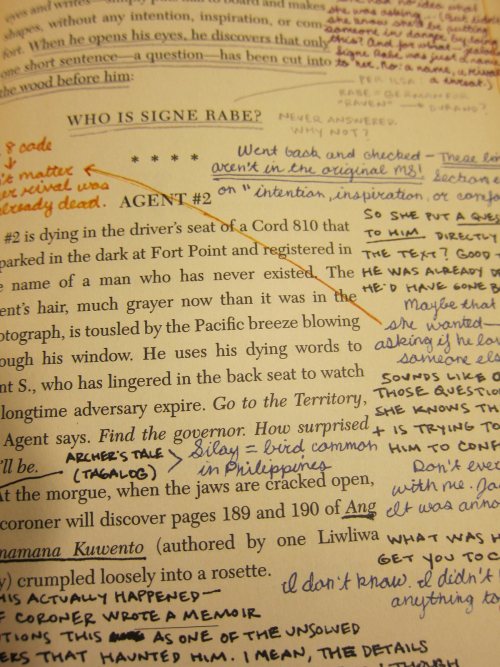 eyes and writes—simply puts
shapes, without any intention, inspiration, or com-
fort. When he opens his eyes, he discovers that only
one short sentence—a question—has been cut into
the wood before him:
someone in danger by
"RAVEN"
WHO IS SIGNE RABE?
NEVER ANSWERED.
WHY NOT?
* * * *
8 code
't matter
rival was
already dead.
Went back and checked— These lin
aren't in the original MS! Section e
on "intention, inspiration, or comfo
AGENT #2
#2 is dying in the driver's seat of a Cord 810 that
parked in the dark at Fort Point and registered in
e name of a man who has never existed. The
ent's hair, much grayer now than it was in the
otograph, is tousled by the Pacific breeze blowing
ough his window. He uses his dying words to
nt S., who has lingered in the back seat to watch
longtime adversary expire. Go to the Territory,
Agent says. Find the governor. How surprised
'll be.
SO SHE PUT A QUES
TO HIM DIRECTLY
THE TEXT? GOOD
HE WAS ALREADY D
HE'D HAVE GONE B
Maybe that
she wanted—
asking if he lov
someone els
SOUNDS LIKE O
THOSE QUESTIO
SHE KNOWS TH
+ IS TRYING TO
HIM TO CONF
ARCHER'S TALE
(TAGALOG)
Silay = bird common
in Philippines
At the morgue, when the jaws are cracked open,
coroner will discover pages 189 and 190 of Ang
namana Kuwento (authored by one Liwliwa
y) crumpled loosely into a rosette.
Don't eve
with me. Ja
It was anno
WHAT WAS H
GET YOU TO C
I don't know. I didn't
anything to
HIS ACTUALLY HAPPENED—
F CORONER WROTE A MEMOIR
TIONS THIS AS ONE OF THE UNSOLVED
ERS THAT HAUNTED HIM. I MEAN, THE DETAILS
THOUGH